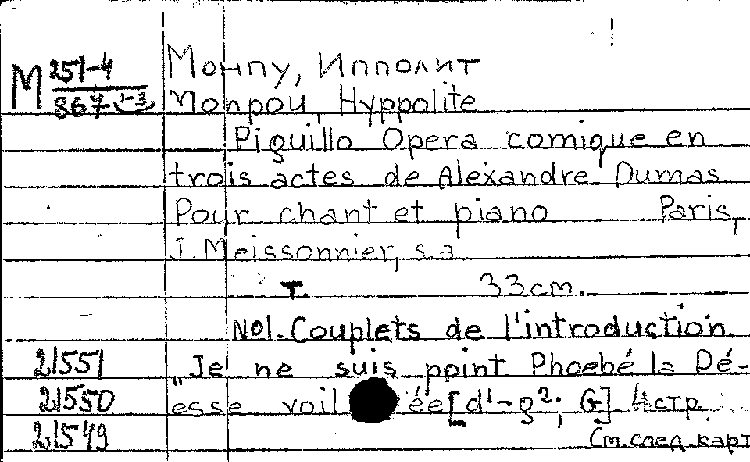 M 251-4 Монпу, Ипполит
867 1-3 Monpou, Hyppolite
Piguillo Opera comique en
trois actes de Alexandre Dumas
Pour chant et piano Paris,
J. Meissonnier, s.a.
т. 33cm.
No1. Couplets de l'introduction
21551 „Je ne suis point Phoebé la Dé-
21550 esse voil ée [d¹-g²; G] 4стр.
21549 См. след. карт